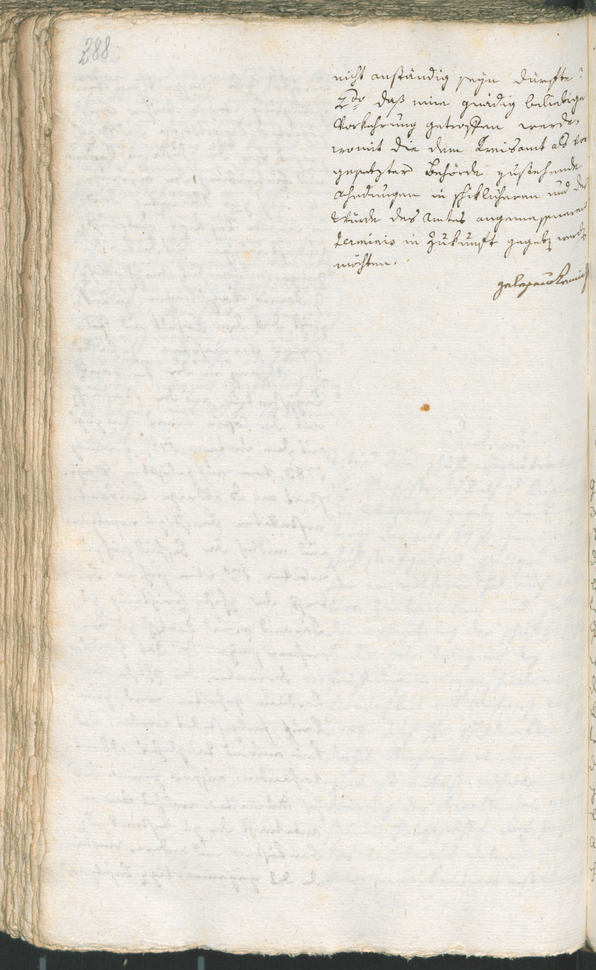 288
nicht anständig seyn dürfte:
2do daß eine gnädig beliebige
Vorkehrung getroffen werde,
womit die dem Kreisamt als vor
gesetzter Behörde zustehende
Ahndungen in schiklicheren und der
Würde des Amtes angemessenern
Terminis in Zukunft gegeb werden
möchten.